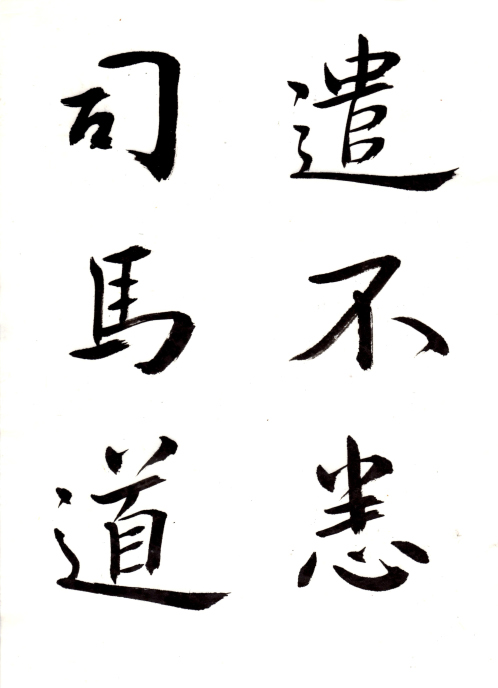 遣不悉
司馬道